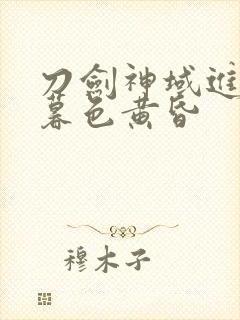 刀劍神域進
暮色黄昏
穆木子